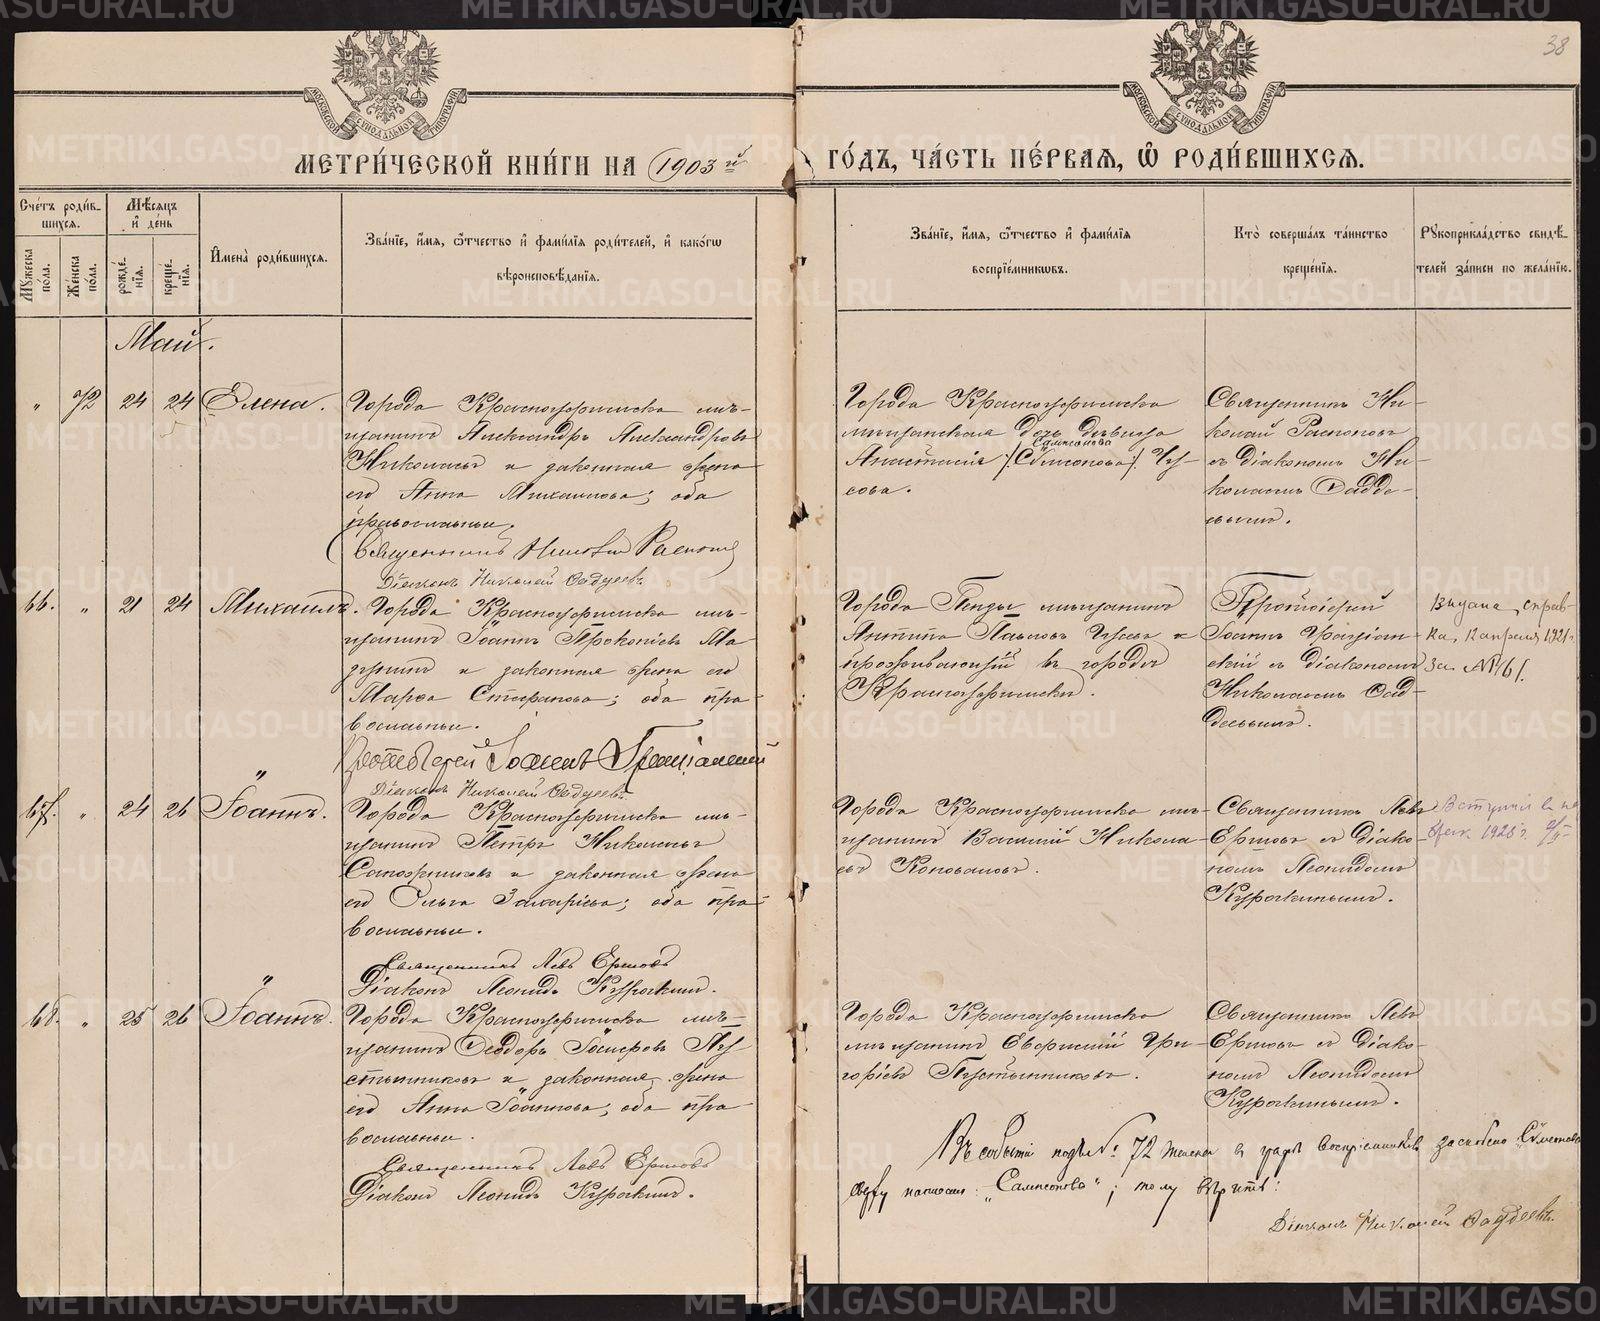 38
МОСКОВСКОЙ СѴНОДАЛЬНОЙ ТИПОГРАФІИ
МОСКОВСКОЙ СѴНОДАЛЬНОЙ ТИПОГРАФІИ
МЕТРИ́ЧЕСКОЙ КНИ́ГИ НА 1903й ГО́ДЪ, ЧА́СТЬ ПЕ́РВАЯ, Ѡ҆ РОДИ́ВШИХСЯ.
Сче́тъ роди́в-
шихся.
Мꙋ́жеска по́ла.
Же́нска по́ла.
Мѣ́сяцъ и҆ де́нь
рожде́нїя.
креще́нїя.
И҆мена̀ роди́вшихся.
Зва́нїе, и҆́мя, ѻ҆́тчество и҆ фами́лїя роди́телей, и҆ како́гѡ
вѣроисповѣ́данїя.
Зва́нїе, и҆́мя, ѻ҆́тчество и҆ фами́лїя
воспрїе́мникѡвъ.
Кто̀ соверша́лъ та́инство
креще́нїя.
Рꙋкоприкла́дство свидѣ́-
телей за́писи по жела́нїю.
Май.
" 72 24 24 Елена.
Города Красноуфимска мѣ-
щанинъ Александръ Александровъ
Николаевъ и законная жена
его Анна Михаилова; оба
православные.
Священникъ Николай Распоповъ
Діаконъ Николай Фаддеевъ
Города Красноуфимска
мѣщанская дочь дѣвица
Сампсонова
Анастасія /Симеонова/ Чу-
сова.
Священникъ Ни-
колай Распоповъ
съ діакономъ Ни-
колаемъ Фадде-
евымъ.
66. " 21 24 Михаилъ.
Города Красноуфимска мѣ-
щанинъ Іоаннъ Прокопіевъ Ма-
и законная жена его
Марѳа Стефанова; оба пра-
вославные.
Протоіерей Іоаннъ Граціанскій
Діаконъ Николай Фаддеевъ
Города Пензы мѣщанинъ
Антипа Павловъ и
проживающій въ городѣ
Красноуфимскѣ.
Протоіерей
Іоаннъ Граціан-
скій съ діакономъ
Николаемъ Фад-
деевымъ.
Выдана справ-
ка, 12 апреля 1921 г.
за №
67. " 24 26 Іоаннъ.
Города Красноуфимска мѣ-
щанинъ Петръ Николаевъ
Сапожниковъ и законная жена
его Ольга Захаріева; оба пра-
вославные.
Священникъ Левъ Ершовъ
Діаконъ Леонидъ Куражинъ.
Города Красноуфимска мѣ-
щанинъ Василій Никола-
евъ Коноваловъ.
Священникъ Левъ
Ершовъ съ діако-
номъ Леонидомъ
Вступил в
брак 1923 г.
68. " 25 26 Іоаннъ.
Города Красноуфимска мѣ-
щанинъ Ѳеодоръ Іосифовъ Пу-
стынниковъ и законная жена
его Анна Іоаннова; оба пра-
вославные.
Священникъ Левъ Ершовъ
Діаконъ Леонидъ
Города Красноуфимска
мѣщанинъ Гри-
горіевъ Пустынниковъ.
Священникъ Левъ
Ершовъ съ діако-
номъ Леонидомъ
Въ событіи подъ № 72 женска въ графѣ воспріемниковъ заскоблено „Симеонова"
сверху написано: „Сампсонова"; тому вѣрить:
Діаконъ Николай Фаддеевъ.
METRIKI.GASO-URAL.RU